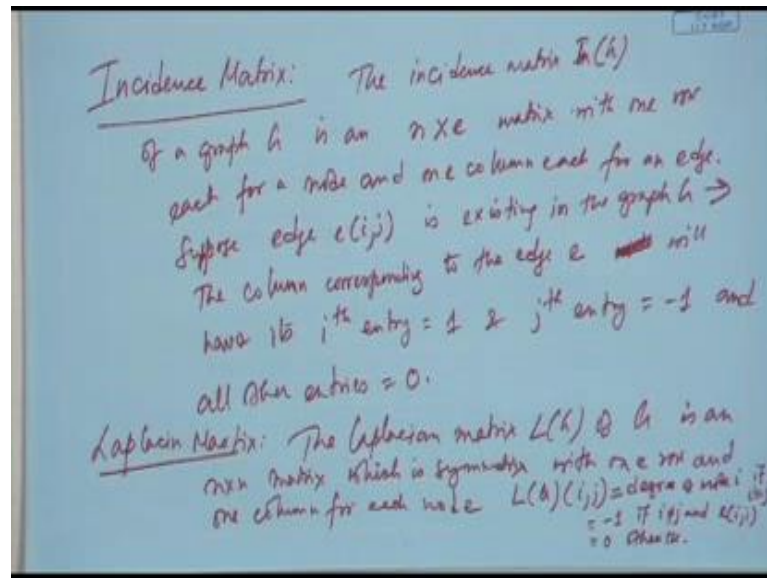 Incidence Matrix: The incidence matrix In(G)
of a graph G is an n×e matrix with one row
each for a node and one column each for an edge.
Suppose edge e(i,j) is existing in the graph G →
The column corresponding to the edge e will
have its i^th entry = 1 & j^th entry = -1 and
all other entries = 0.
Laplacin Maetix: The Laplacian matrix L(G) of G is an
n×n matrix which is symmetric with one row and
one column for each node L(G)(i,j) = degree of node i if
= -1 if i≠j and e(i,j)
= 0 otherwise.